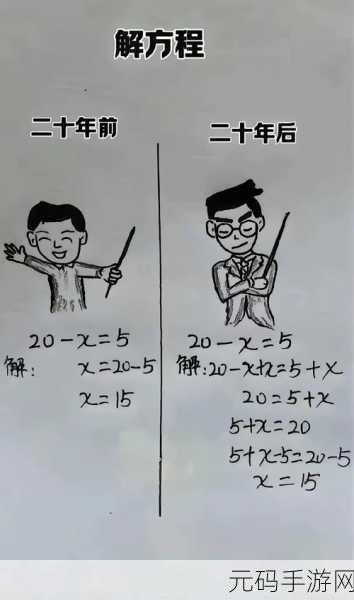 解方程
二十年前
20-x=5
解: x=20-5
x=15
二十年后
20-x=5
解:20-x+x=5+x
20=5+x
5+x=20
5+x-5=20-5
x=15
元码手游网